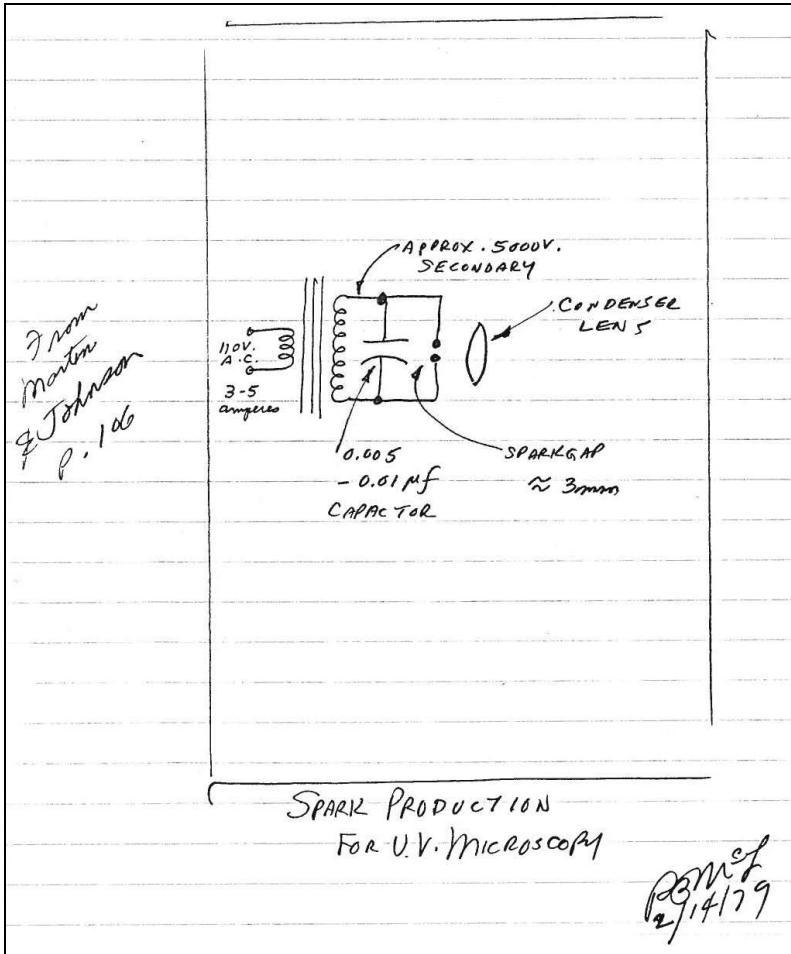 From
Martin
& Johnson
p. 106
APPROX. 5000V.
SECONDARY
CONDENSER
LENS
110V.
A.C.
3-5
amperes
0.005
- 0.01 µf
CAPACTOR
SPARKGAP
≈ 3mm
SPARK PRODUCTION
FOR U.V. MICROSCOPY
2/14/79